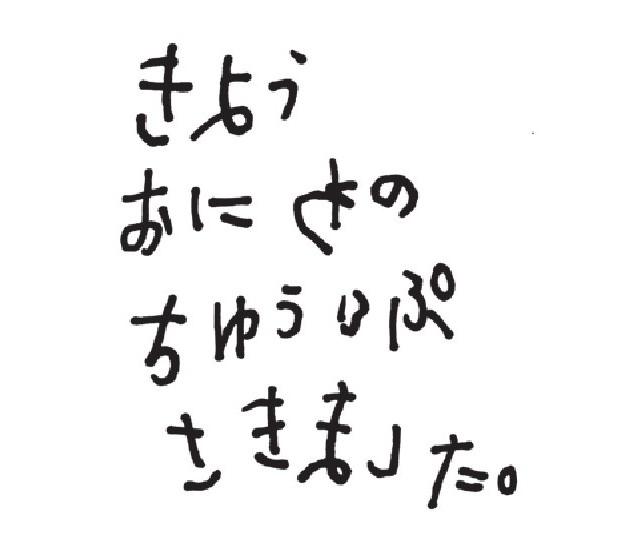 きよう
おにわの
ちゆうりぷ
さきました。